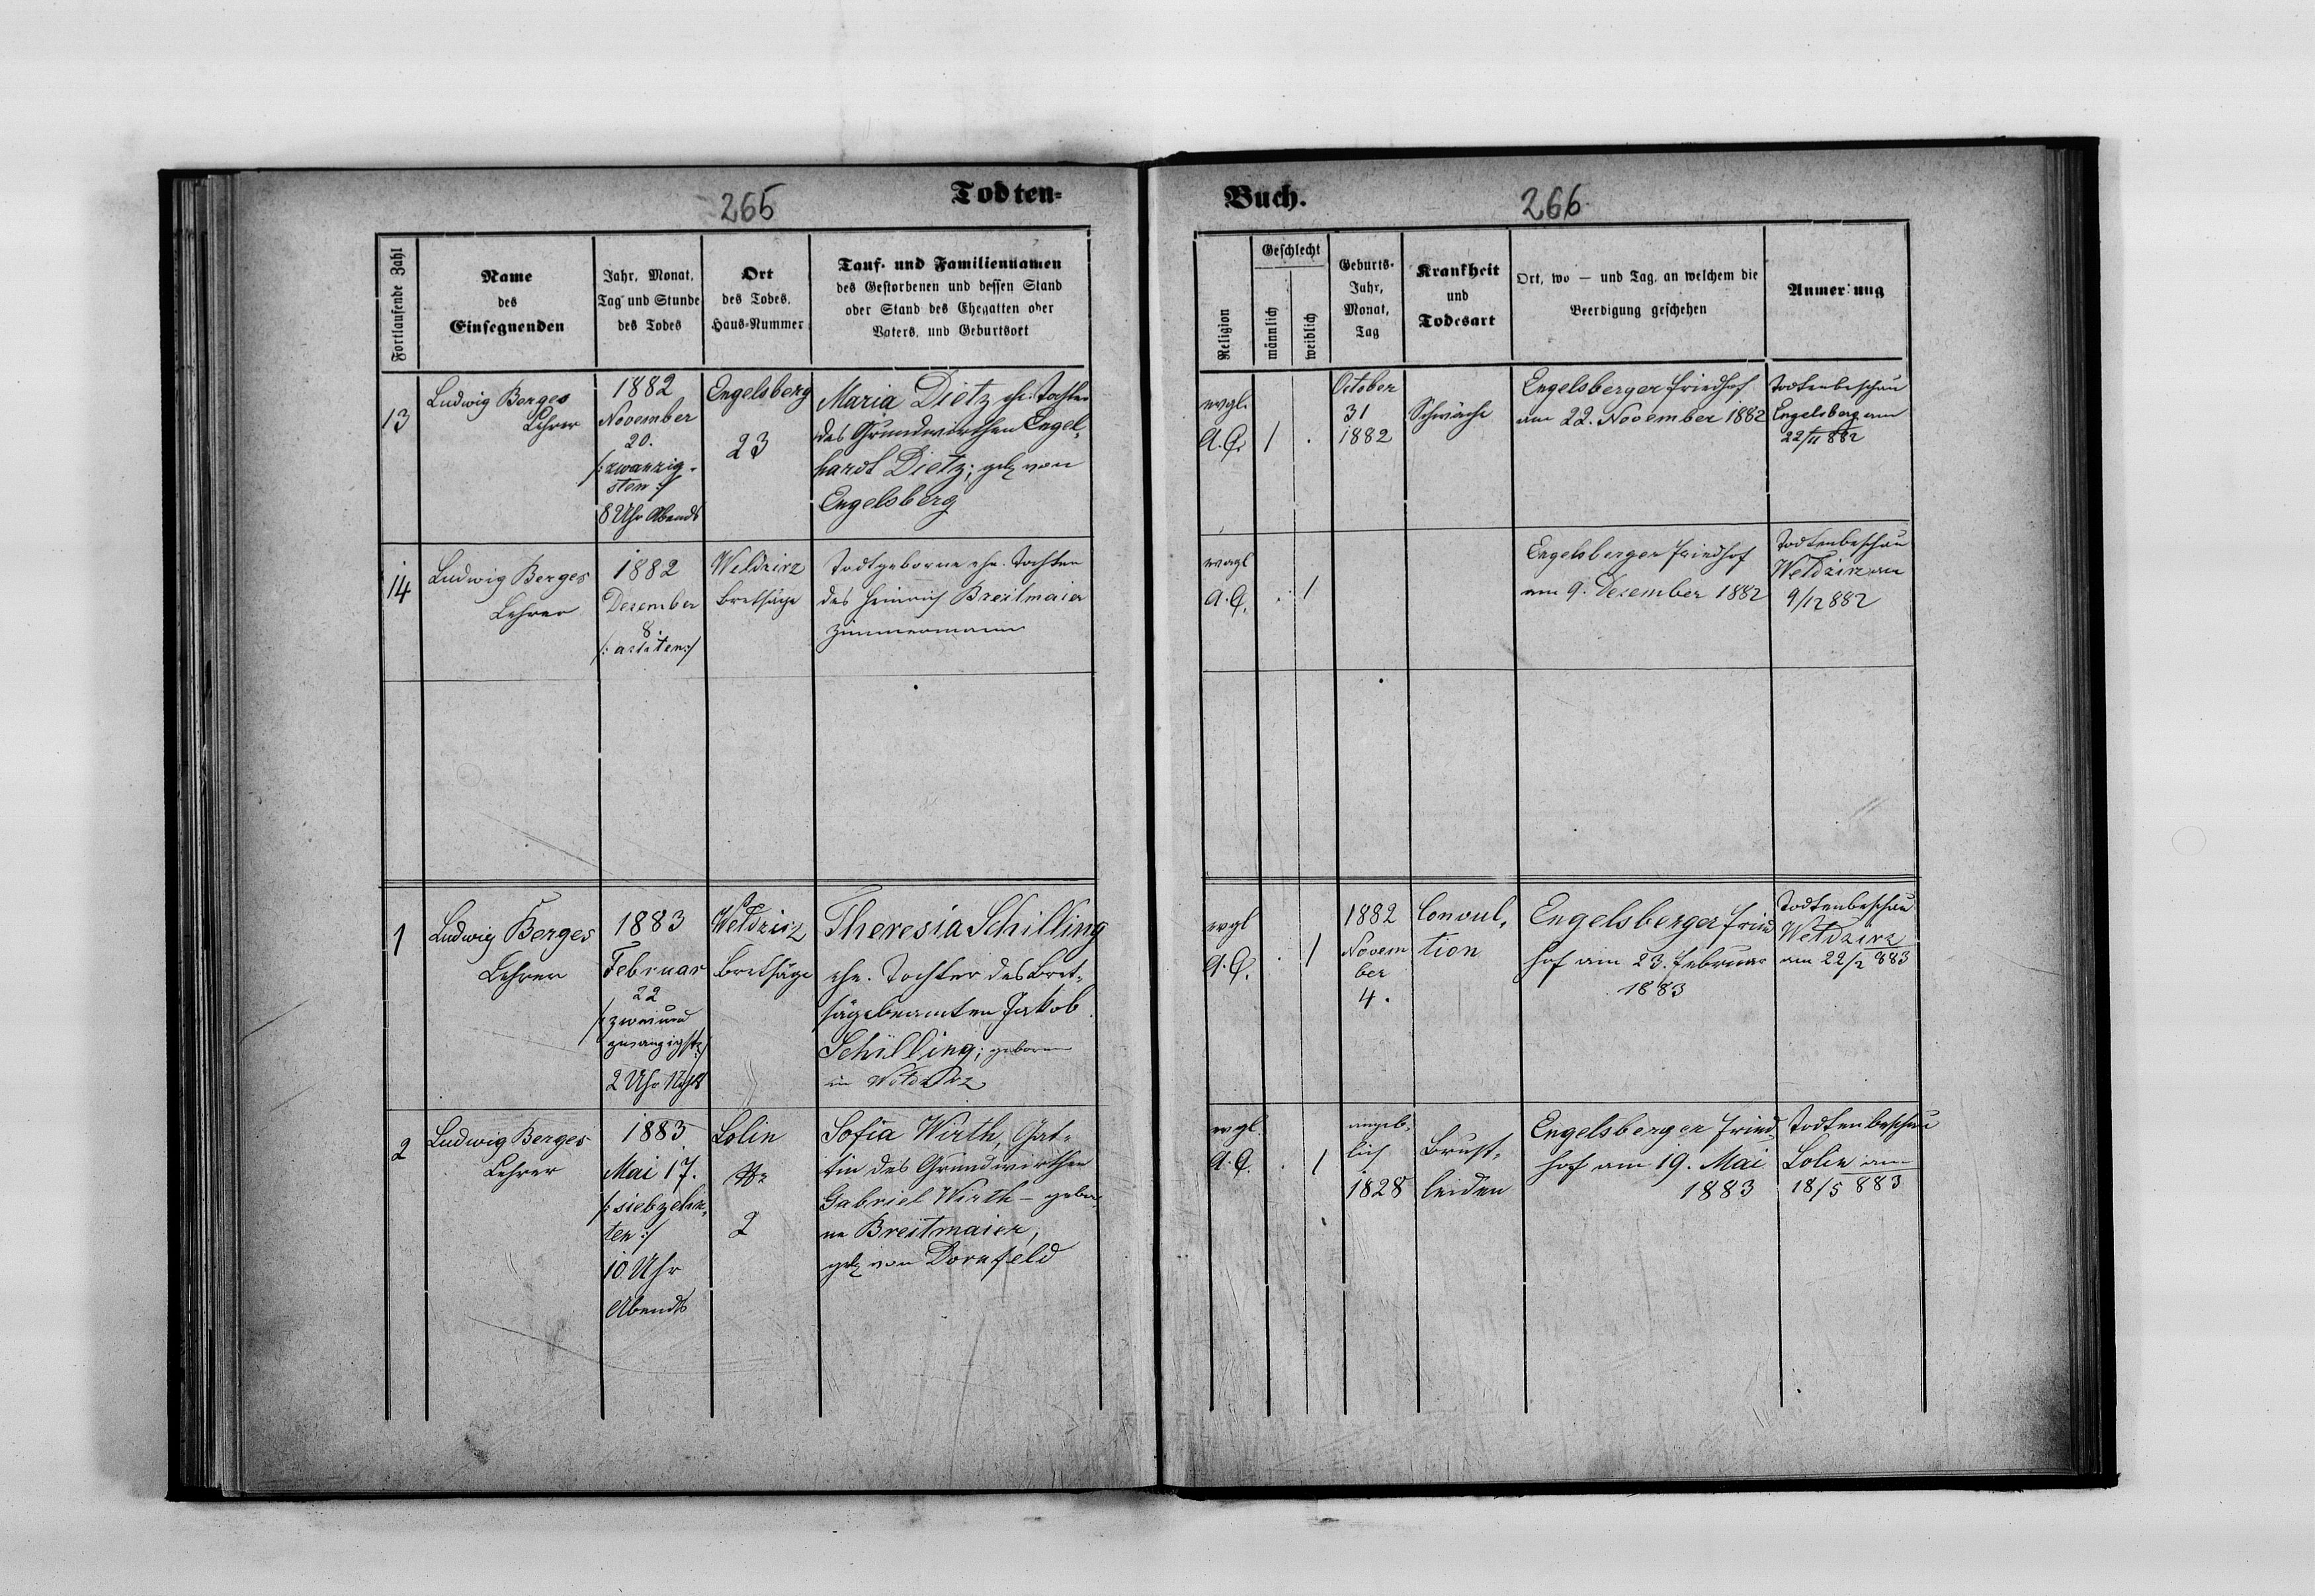 265
Todten=
Fortlaufende Zahl
Name
des
Einsegnenden
Jahr, Monat,
Tag und Stunde
des Todes
Ort
des Todes,
Haus=Nummer
Tauf- und Familiennamen
des Gestorbenen und dessen Stand
oder Stand des Ehegatten oder
Vaters, und Geburtsort
13
Ludwig Berges
Lehrer
1882
November
20.
/: zwanzig-
sten :/
8 Uhr Abends
Engelsberg
23
Maria Dietz ehe. Tochter
des Grundwirthen Engel-
hardt Dietz; geb. von
Engelsberg
14
Ludwig Berges
Lehrer
1882
Dezember
8.
/: achten :/
Weldzirz
Bretsäge
Todtgeborne ehe. Tochter
des Heinrich Breitmaier
Zimmermann
1
Ludwig Berges
Lehrer
1883
Februar
22
/: zweiund
zwanzigst :/
2 Uhr Nachts
Weldzirz
Bretsäge
Theresia Schilling
ehe. Tochter des Bret-
sägebeamten Jakob
Schilling; geboren
in Weldzirz
2
Ludwig Berges
Lehrer
1883
Mai 17.
/: siebzehn-
ten :/
10 Uhr
Abends
Lolin
Nr
2
Sofia Wirth, Gat-
tin des Grundwirthen
Gabriel Wirth – gebor-
ne Breitmaier,
geb. von Dornfeld
Buch.
266
Religion
Geschlecht
männlich
weiblich
Geburts-
Jahr,
Monat,
Tag
Krankheit
und
Todesart
Ort, wo — und Tag, an welchem die
Beerdigung geschehen
Anmer ung
evgl.
A. C.
/ .
October
31
1882
Schwäche
Engelsberger Friedhof
am 22. November 1882
Todtenbeschau
Engelsberg am
22/11 882
evgl
A. C.
. /
Engelsberger Friedhof
am 9. Dezember 1882
Todtenbeschau
Weldzirz am
9/12 882
evgl
A. C.
. /
1882
Novem
ber
4.
Convul-
tion
Engelsberger Fried
hof am 23. Februar
1883
Todtenbeschau
Weldzirz
am 22/2 883
evgl.
A. C.
. /
angeb-
lich
1828
Brust-
leiden
Engelsberger Fried-
hof am 19. Mai
1883
Todtenbeschau
Lolin am
18/5 883